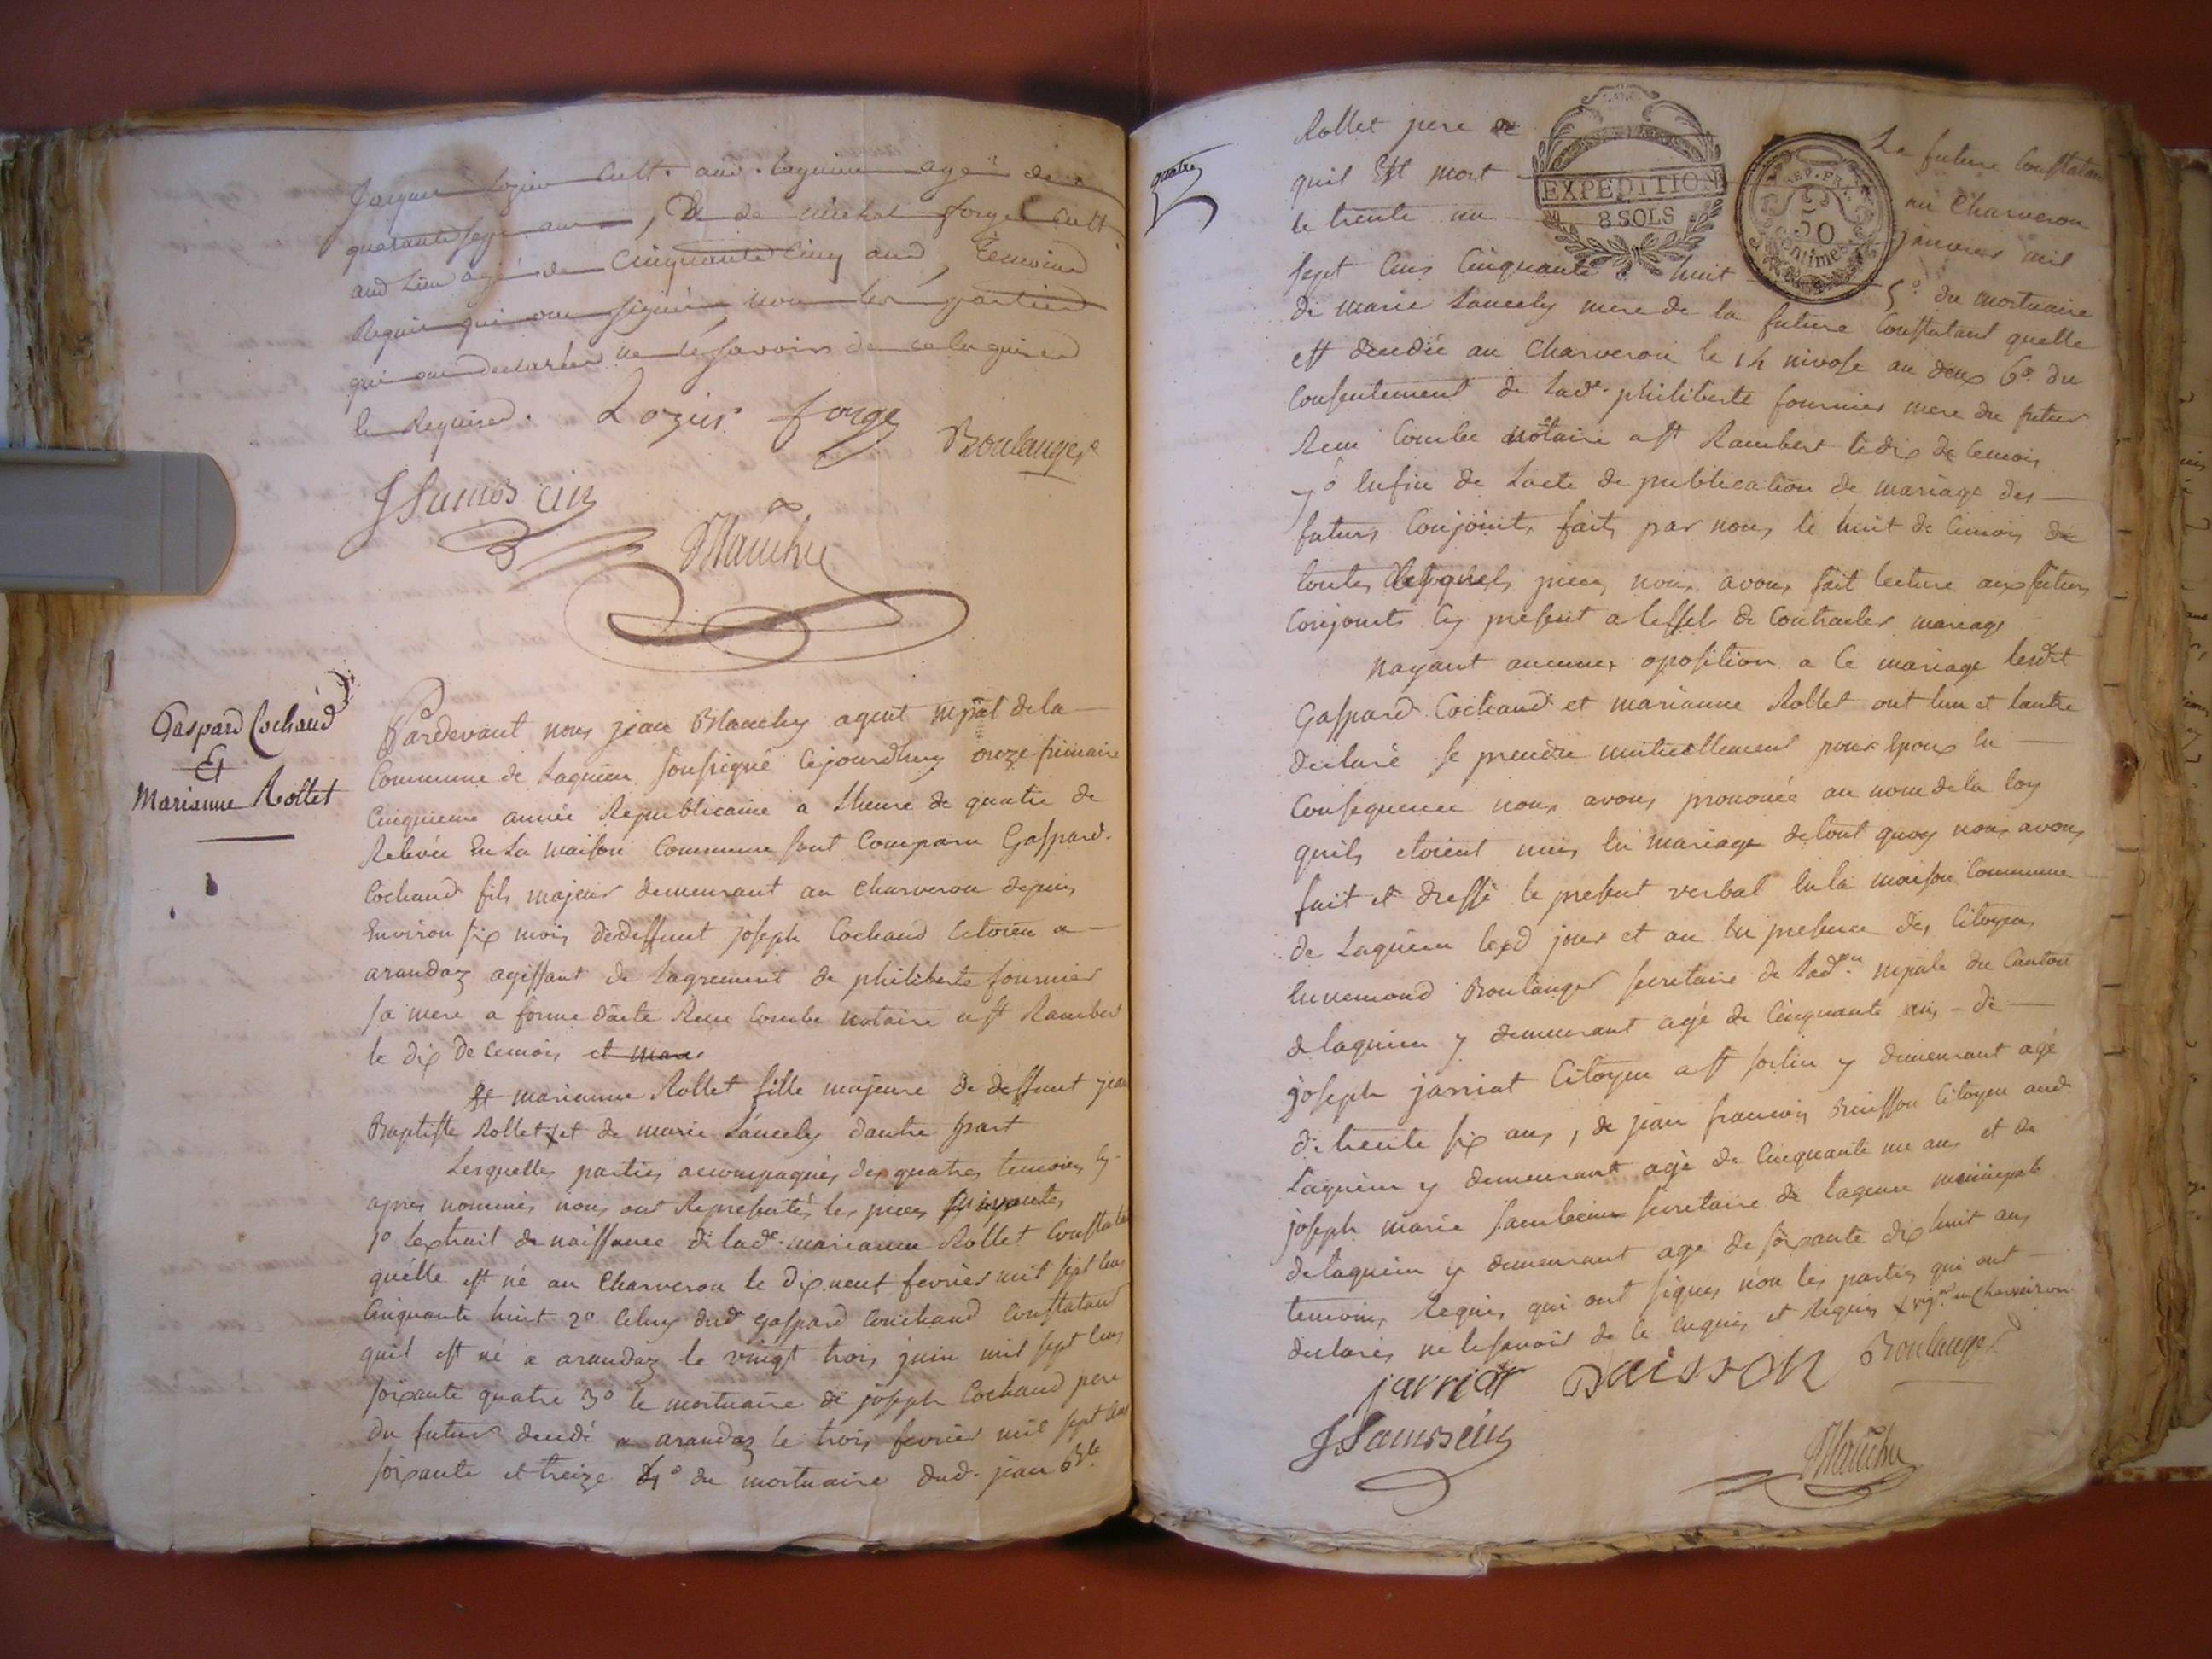 Jaques Lozier cult. aud. laguieu agé de
quarante sept ans, Et de michel forge cult.
aud lieu agé de Cinquante Cinq ans, Temoins
Requis qui ont signés, non les parties
qui ont declarées ne le savoir de ce Enquises
le Requises. Lozier forge
Boulanger
JSamboein
JBlanchy
Gaspard Cochaud
Et
Marianne Rollet
Pardevant nous jean Blanchy agent mpal de la
Commune de Laguieu soussigné cejourdhuy onze frimaire
Cinquieme année Republicaine a Lheure de quatre de
Relevée En La maison Commune sont Comparu Gaspard
Cochaud fils majeur demeurant au Charveron depuis
Environ six mois de deffunt joseph Cochaud Citoien a
arandaz agissant de Lagrement de philiberte fournier
sa mere a forme dacte Recu Combe notaire a st Rambert
le dix de cemois et mari
Et marianne Rollet fille majeure de deffunt jean
Baptiste Rollet x et de marie Lancely dautre part
Lesquelles parties accompagnés des quatres temoins cy
apres nommés nous ont Representés les pieces suivantes
1º Lextrait de naissance de lade. marianne Rollet Constatant
quelle est né au Charveron le dix neuf fevrier mil sept cens
Cinquante huit 2º Celuy dud gaspard Couchaud Constatant
quil est né a arandaz le vingt trois juin mil sept cens
soixante quatre 3º le mortuaire de joseph Cochaud pere
du futur decedé a arandaz le trois fevrier mil sept cens
soixante et treize 4º du mortuaire dud. jean Bte
quatre
Rollet pere de La future Constatant
quil Est mort au Charveron
le trente un janvier mil
sept Cens Cinquante huit 5º du mortuaire
EXPEDITION
8 SOLS
REP. FRA.
50
Centimes
de marie Lancely mere de la future Constatant quelle
est decedée au Charveron le 14 nivose an deux 6º du
Consentement de Lade. philiberte fournier mere du futur
Recu Combe notaire a st Rambert le dix de cemois
7º Enfin de Lacte de publication de mariage des
futurs Conjoints faits par nous le huit de cemois de
toutes lesquels pieces nous avons fait lecture aux futurs
Conjoints Cy present a leffet de Contracter mariage
nayant aucunes oposition a ce mariage lesdt
Gaspard Cochaud et marianne Rollet ont lun et lautre
declaré se prendre mutuellement pour Epoux En
Consequence nous avons prononcé au nom de la loy
quils etoient unis En mariage de tout quoy nous avons
fait et dressé le present verbal En la maison Commune
de Laguieu lesd jour et an En presence des Citoyens
Ennemond Boulanger secretaire de Ladon mpale du Canton
de laguieu y demeurant agé de Cinquante ans - de
joseph jarriat Citoyen a st sorlin y demeurant agé
de trente six ans, de jean francois Buisson Citoyen aud
Laguieu y demeurant agé de Cinquante un ans et de
joseph marie Samboein secretaire de lagence municipale
de laguieu y demeurant age de soixante dix huit ans
temoins Requis qui ont signes non les parties qui ont
declarés ne le savoir de ce enquis et Requis x vign. au Charveiron
jarriat Buisson Boulanger
JSamboein
JBlanchy